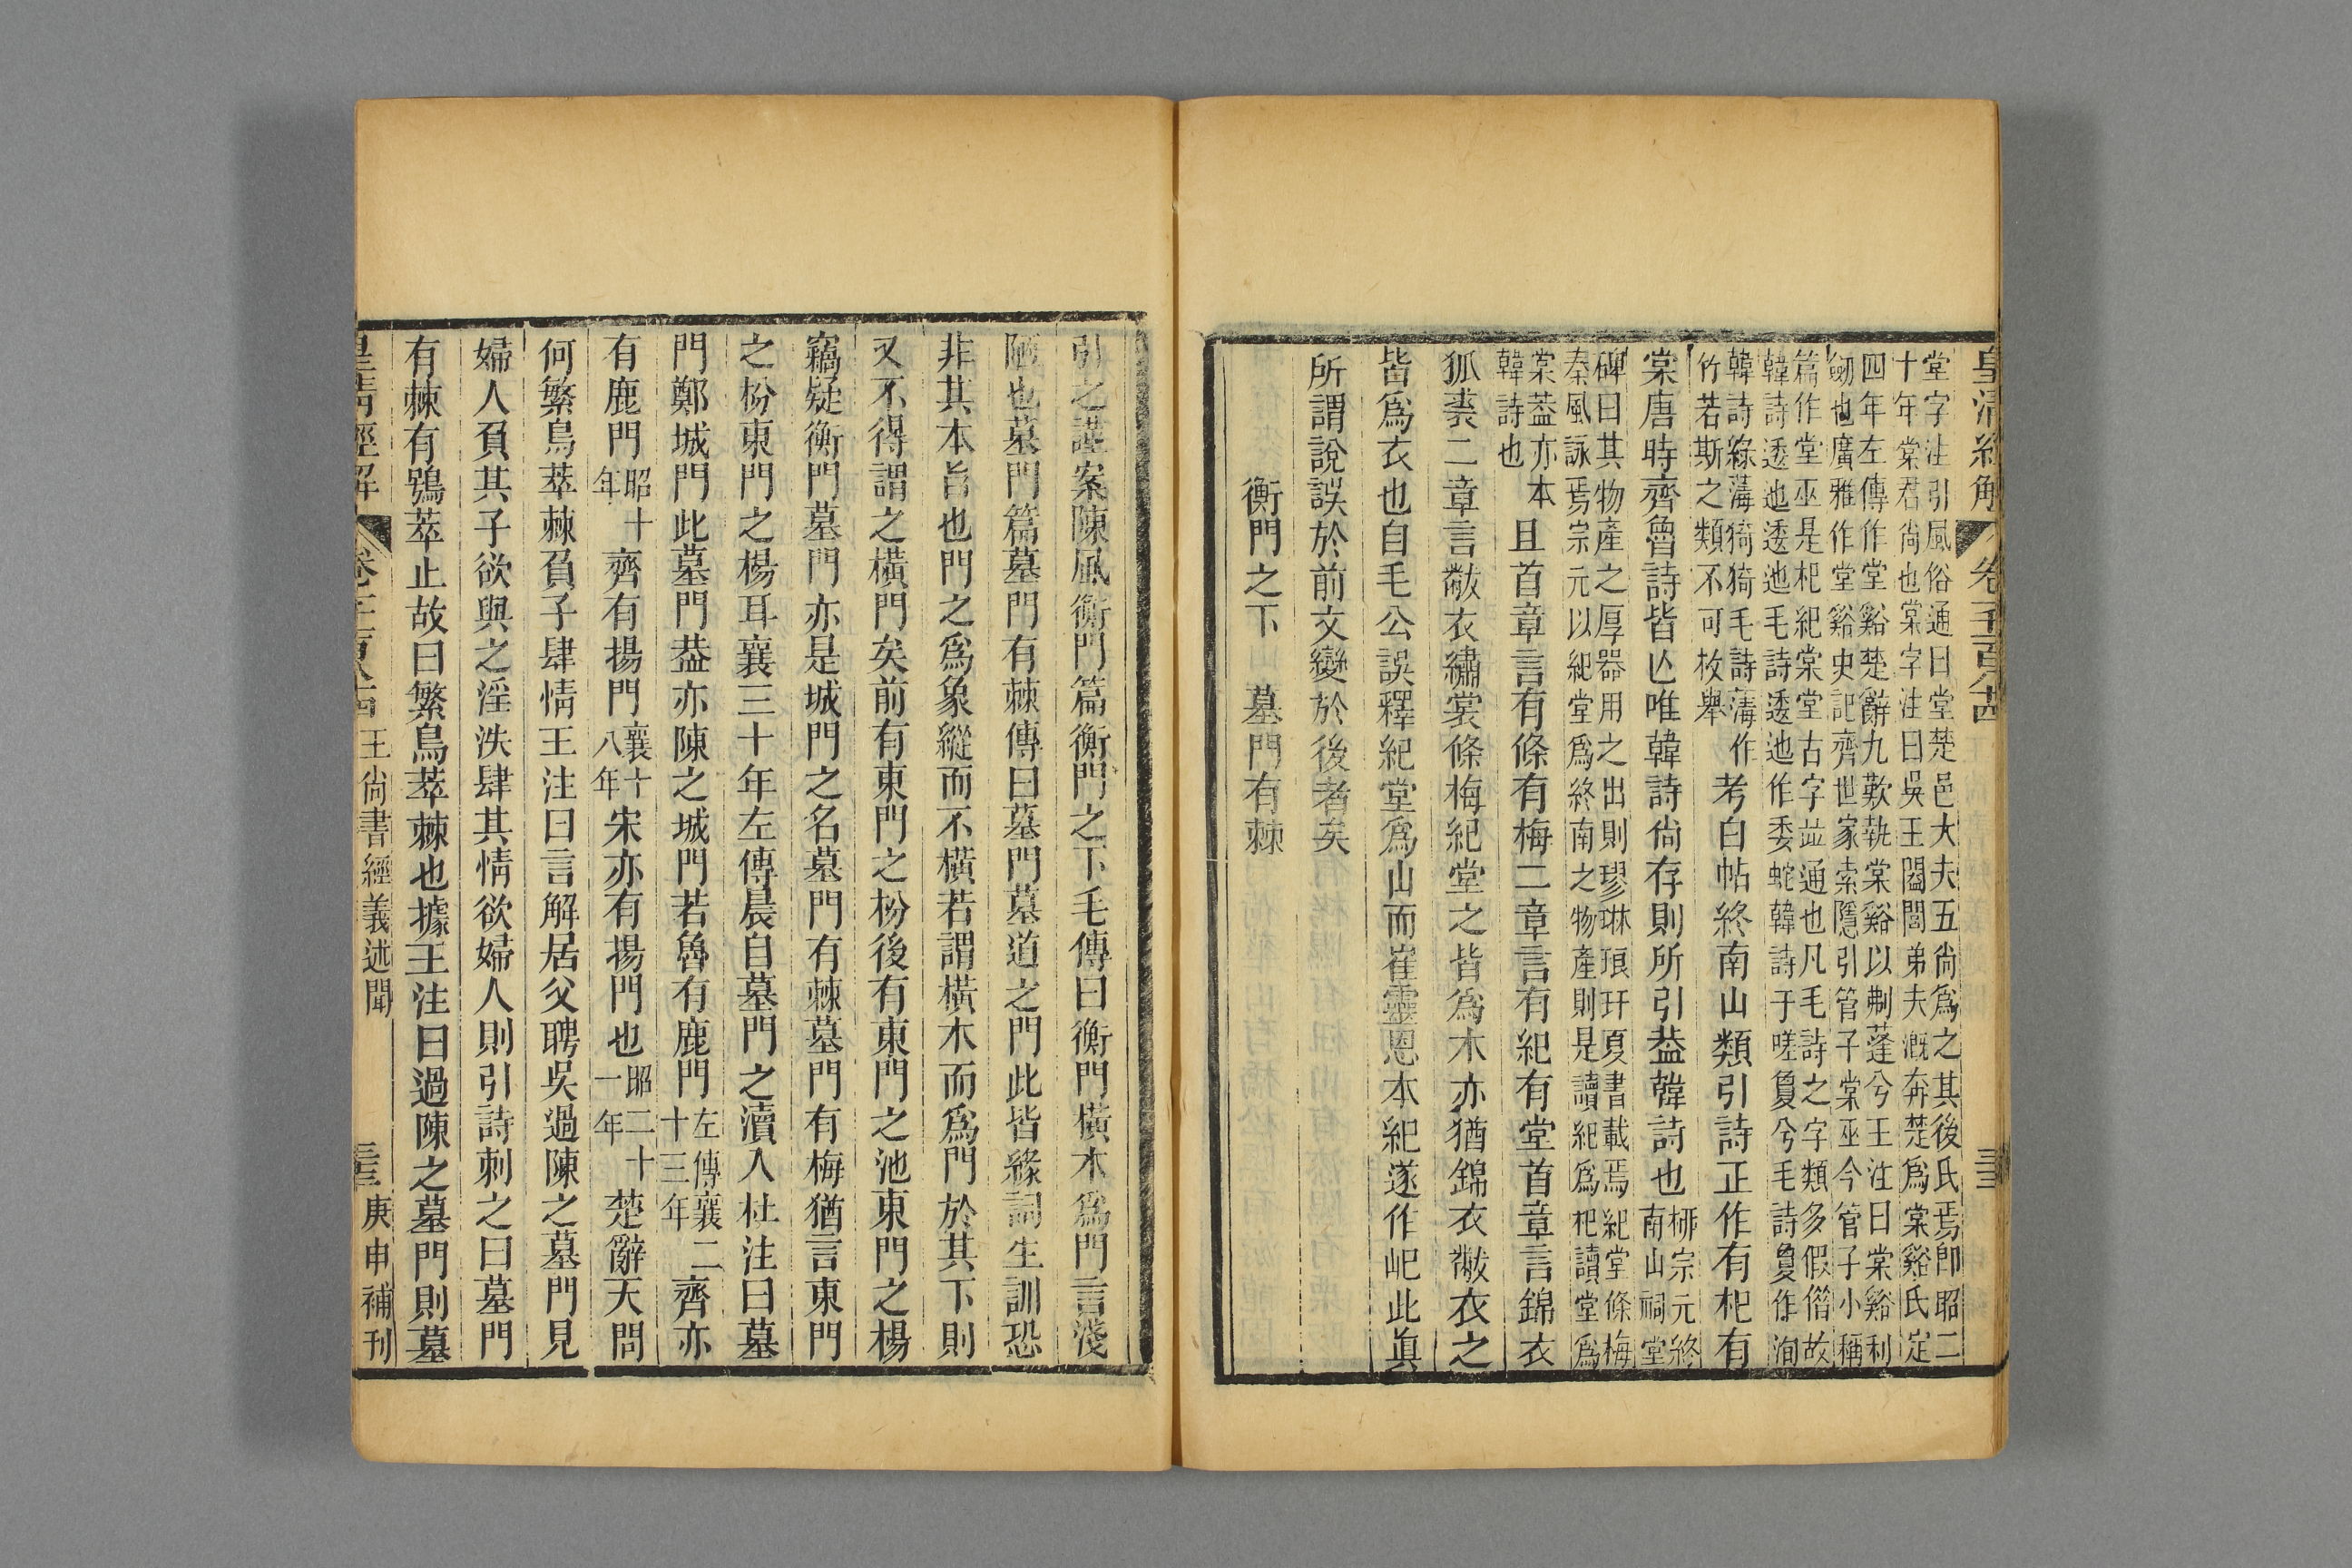 皇清經解 卷千百八十四 三十三
堂字注引風俗通曰堂楚邑大夫五尚爲之其後氏焉卽昭二
十年棠君尚也棠字注曰吳王闔閭弟夫漑奔楚爲棠谿氏定
四年左傳作堂谿楚辭九歎執棠谿以刜蓬兮王注曰棠谿利
劒也廣雅作堂谿史記齊世家索隱引管子棠巫今管子小稱
篇作堂巫是杞紀棠堂古字竝通也凡毛詩之字類多假借故
韓詩逶迆逶迆毛詩逶迆作委蛇韓詩于嗟敻兮毛詩敻作洵
韓詩綠𦺇猗猗毛詩𦺇作
竹若斯之類不可枚舉
考白帖終南山類引詩正作有杞有
棠唐時齊魯詩皆亾唯韓詩尙存則所引葢韓詩也
柳宗元終
南山祠堂
碑曰其物產之厚器用之出則璆琳琅玕夏書載焉紀堂條梅
秦風詠焉宗元以紀堂爲終南之物產則是讀紀爲杞讀堂爲
棠葢亦本
韓詩也
且首章言有條有梅二章言有紀有堂首章言錦衣
狐裘二章言黻衣繡裳條梅紀堂之皆爲木亦猶錦衣黻衣之
皆爲衣也自毛公誤釋紀堂爲山而崔靈恩本紀遂作屺此眞
所謂說誤於前文變於後者矣
衡門之下 墓門有棘
引之謹案陳風衡門篇衡門之下毛傳曰衡門橫木爲門言淺
陋也墓門篇墓門有棘傳曰墓門墓道之門此皆緣詞生訓恐
非其本旨也門之爲象縱而不橫若謂橫木而爲門於其下則
又不得謂之橫門矣前有東門之枌後有東門之池東門之楊
竊疑衡門墓門亦是城門之名墓門有棘墓門有梅猶言東門
之枌東門之楊耳襄三十年左傳晨自墓門之瀆入杜注曰墓
門鄭城門此墓門葢亦陳之城門若魯有鹿門
左傳襄二
十三年
齊亦
有鹿門
昭十
年
齊有揚門
襄十
八年
宋亦有揚門也
昭二十
一年
楚辭天問
何繁鳥萃棘負子肆情王注曰言解居父聘吳過陳之墓門見
婦人負其子欲與之淫泆肆其情欲婦人則引詩刺之曰墓門
有棘有鴞萃止故曰繁鳥萃棘也據王注曰過陳之墓門則墓
皇清經解 卷 王尙書經義述聞 三十三 庚申補刊